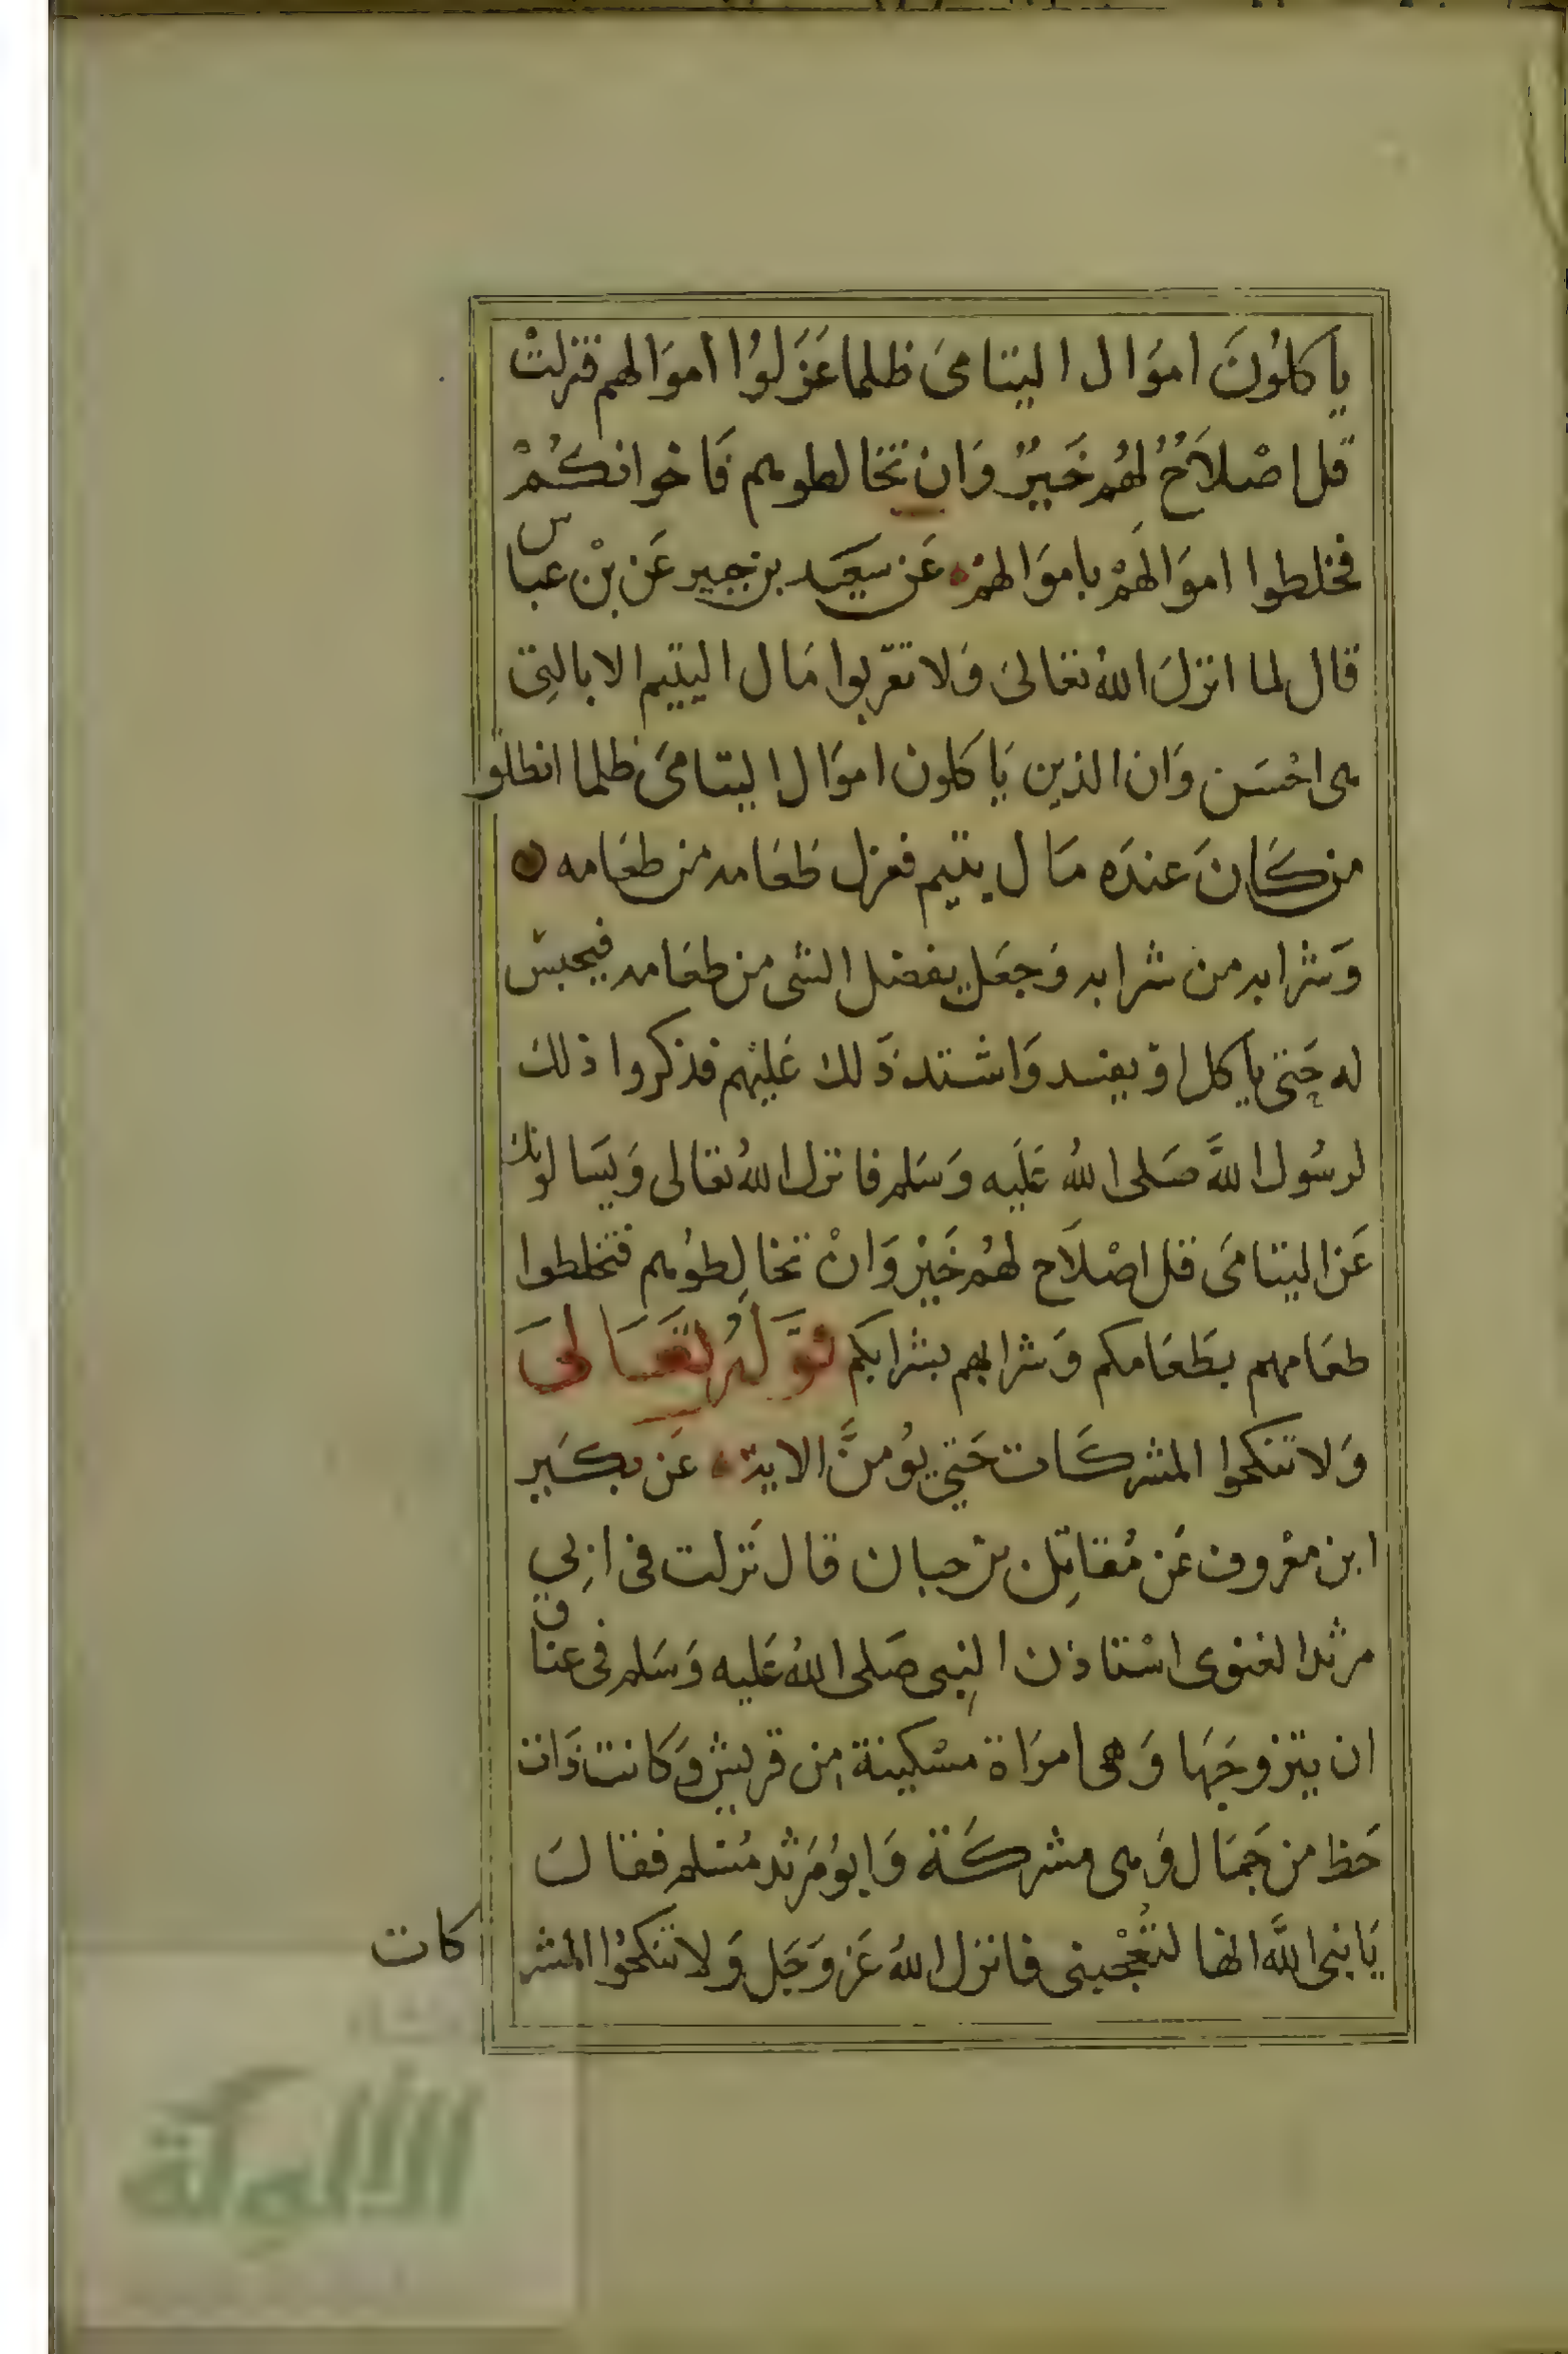 ياكلُونَ اموَال اليتامىَ ظلما عَزَلوُا اموَالهم فنزلتْ
قل اصْلاَحُ لهُم خَيرٌ وَان تخالطوهم فَاخوانكُمْ
فخلطوا اموَالهَمْ باموَالهمْ عَن سَعيَد بن جبير عَن بْن عباس
قال لما انزلَ اللهُ تعَالىَ وَلا تقرّبوا مَال اليتيم الا بالتِى
هى احْسَن وَان الذين يَاكلون اموَال اليتامىَ ظلما انطلقوا
من كَانَ عندَه مَال يتيم فعزل طَعَامه من طعَامه
وَشرابه من شرابه وَجعَل يفضل الشى من طعَامه فيحبسَ
له حَتى يأكل اوْ يفسد وَاشتد ذَلك عَليْهم فذكروا ذلك
لرسُول اللهَّ صَلى اللهُ عَلَيه وَسَلم فانزل اللهُ تعَالى وَيسَالونك
عَن اليتامىَ قل اصْلَاح لهُم خَيرْ وَانْ تخالِطوُهم فتخلطوا
طعَامهم بطَعَامكم وَشرابهم بشرابكَم قوَّلهُ تعَالىَ
وَلا تنكحوا المشركَات حَتي يوُمنَّ الاية عَن بكَير
ابن معْروف عَن مُقاتِل بن حبان قال نَزلت فى ابِي
مرثد الغنوى اسْتاذن النبِى صَلى اللهُ عَليه وَسَلم فى عناق
ان يتزوجَهَا وَهى امرَاة مسْكينة من قريش وَكانت ذَات
حَظ من جَمَال وَهى مشركَة وَابوُ مَرثد مُسْلم فقالَ
يَا نبى اللهَّ انها لتُعْجبنى فانزل اللهُ عَز وَجَل وَلا تنكحُوا المشر
كات
الألوكة